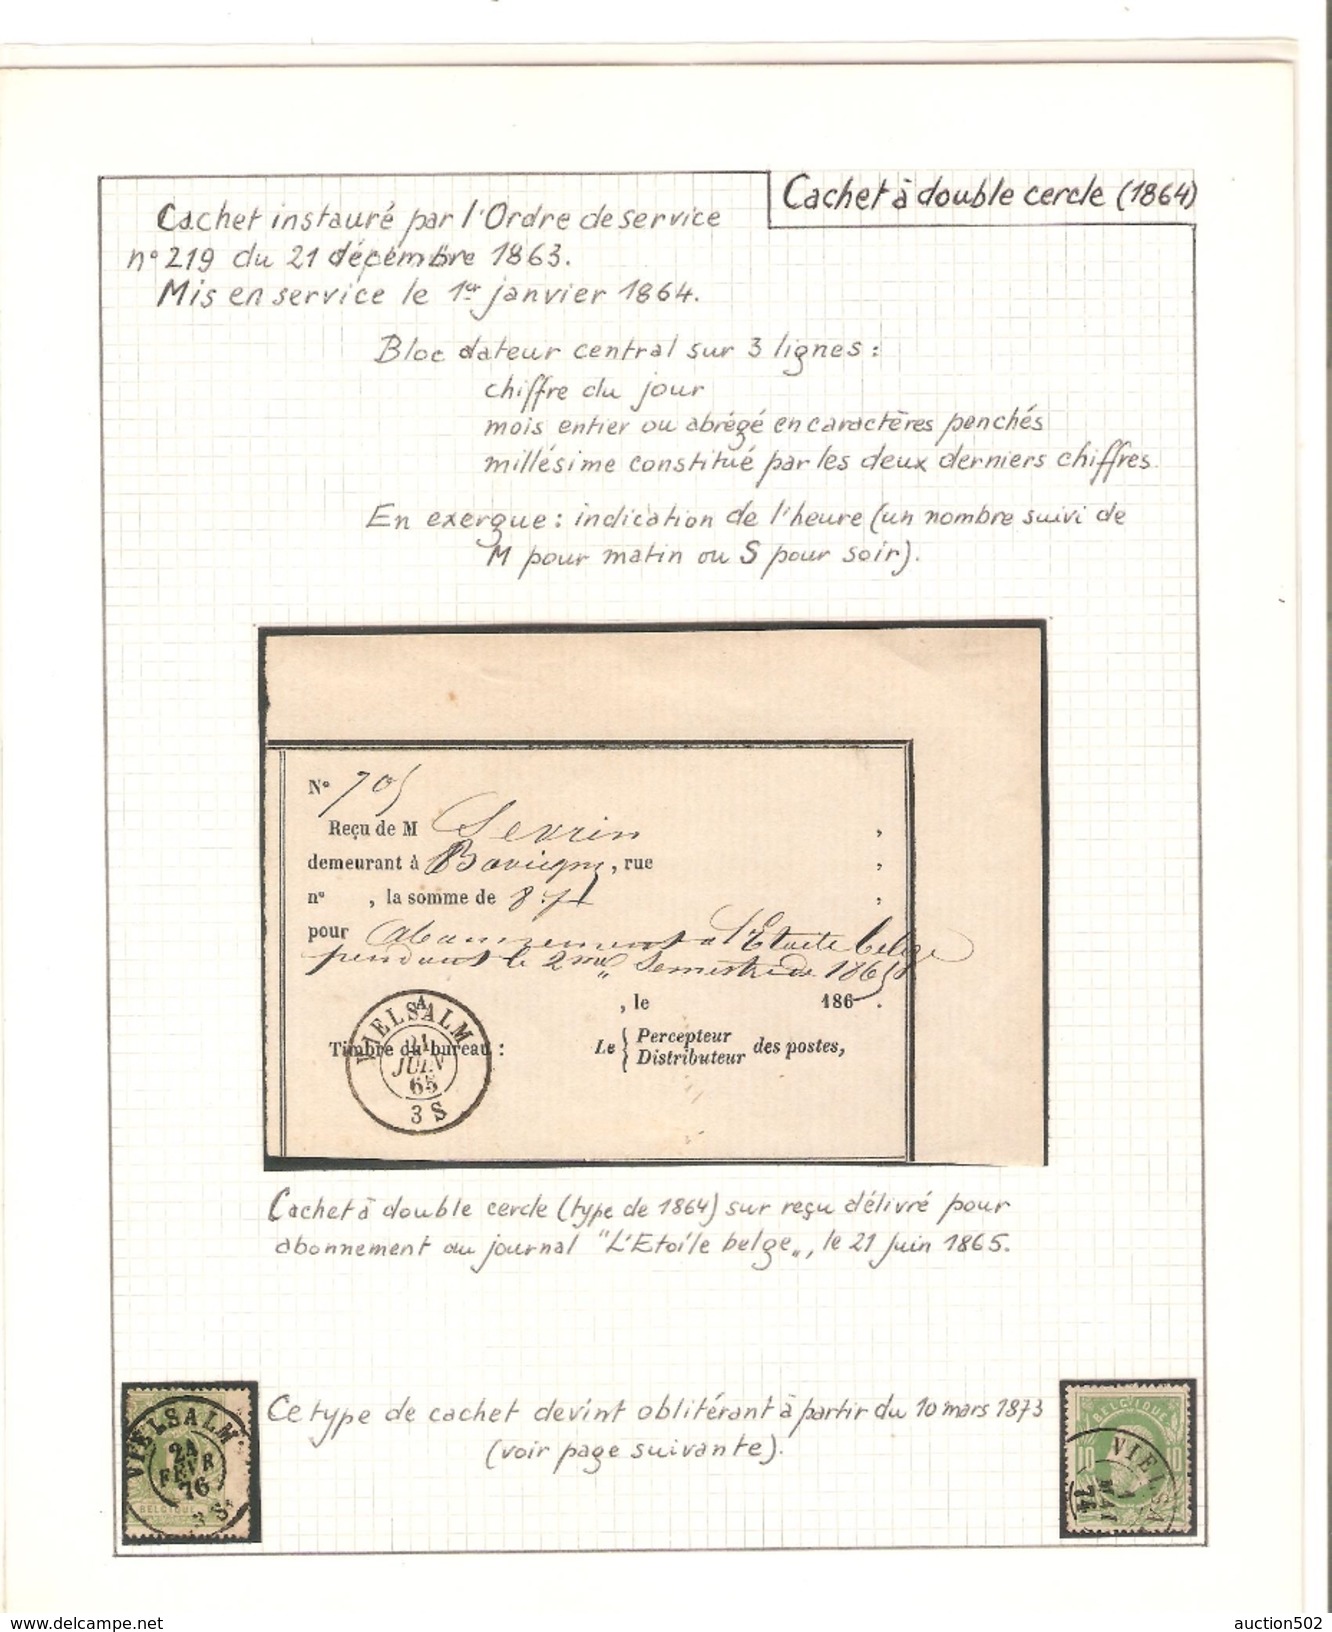 Cachet à double cercle (1864)
Cachet instauré par l'Ordre de service
n° 219 du 21 décembre 1863.
Mis en service le 1er janvier 1864.
Bloc dateur central sur 3 lignes :
chiffre du jour
mois entier ou abrégé en caractères penchés
millésime constitué par les deux derniers chiffres.
En exergue : indication de l'heure (un nombre suivi de
M pour matin ou S pour soir).
N° 705
Reçu de M Sevrin ,
demeurant à Bovigny, rue ,
n° , la somme de 8.71 ,
pour abonnement a l'Etoile belge
pendant le 2me Semestre de 1865
, le 1865.
Timbre du bureau :
Le { Percepteur
Distributeur } des postes,
A
VIELSALM
21
JUIN
65
3 S
Cachet à double cercle (type de 1864) sur reçu délivré pour
abonnement au journal "L'Etoile belge", le 21 Juin 1865.
Ce type de cachet devint oblitérant à partir du 10 mars 1873
(voir page suivante).
VIELSALM
24
FEVR
76
3 S
BELGIQUE
BELGIQUE
10 10
VIELSA
1
MAI
74
www.delcampe.net
auction502